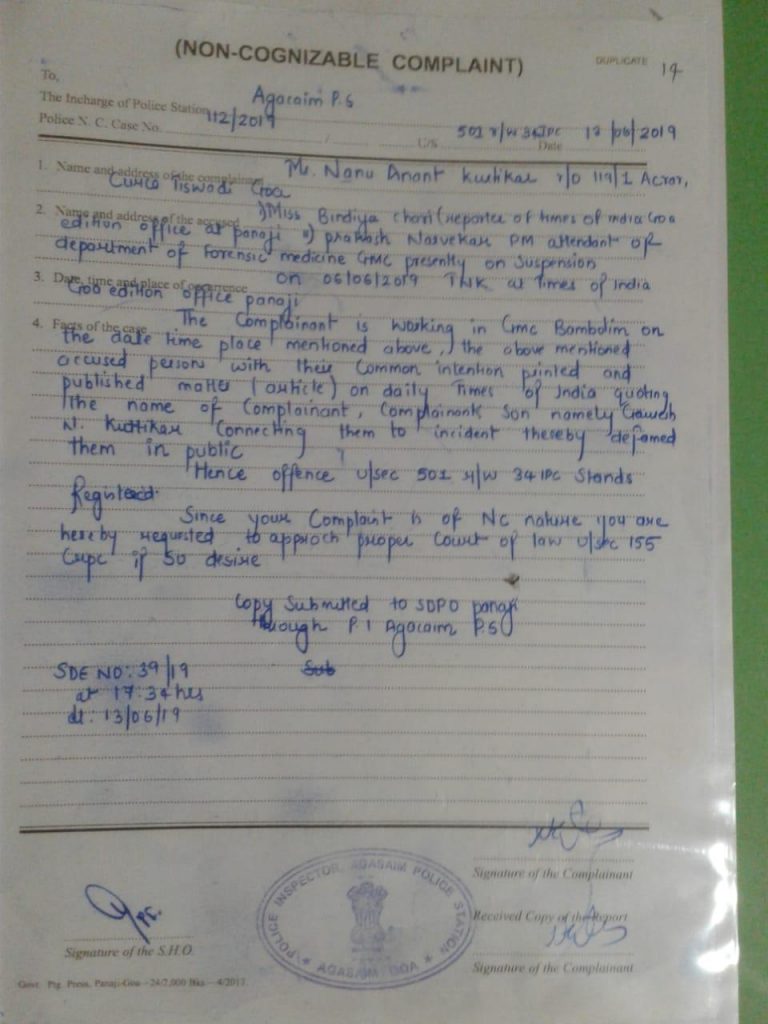 (NON-COGNIZABLE COMPLAINT)
DUPLICATE 14
To,
The Incharge of Police Station Agacaim P.S
Police N. C. Case No. 112/2019 U/S 501 r/w 34IPC Date 13/06/2019
1. Name and address of the complainant Mr. Nanu Anant Kuttikar r/o 119/1 Acror,
Curca Tiswadi Goa
2. Name and address of the accused i) Miss Bindiya chari (reporter of times of india Goa
edition office at panaji ii) prakash Narvekar PM attendant of
department of Forensic medicine GMC presently on suspension
3. Date, time and place of occurrence on 06/06/2019 TNK at Times of India
Goa edition office panaji
4. Facts of the case The Complainant is working in Gmc Bambolim on
the date time place mentioned above, the above mentioned
accused person with their Common intention printed and
published matter (article) on daily Times of India quoting
the name of Complainant, Complainants son namely
N. Kuttikar Connecting them to incident thereby defamed
them in public
Hence offence u/sec 501 r/w 34 IPC Stands
Registered.
Since your Complaint is of NC nature you are
hereby requested to approch proper Court of law u/sec 155
Crpc if so desire
Copy Submitted to SDPO panaji
through P.I Agacaim P.S
Sub
SDE NO: 39/19
at 17:34 hrs
dt: 13/06/19
Signature of the Complainant
PC.
POLICE INSPECTOR, AGASAIM POLICE STATION
AGASAIM GOA
Received Copy of the Report
Signature of the S.H.O.
Signature of the Complainant
Govt. Ptg. Press, Panaji-Goa—24/2,000 Bks.—4/2017.